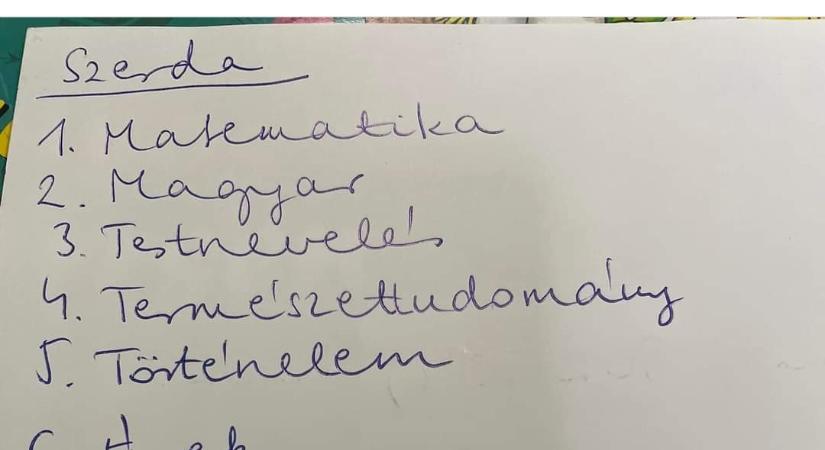 Szerda
1. Matematika
2. Magyar
3. Testnevelés
4. Természettudomány
5. Történelem